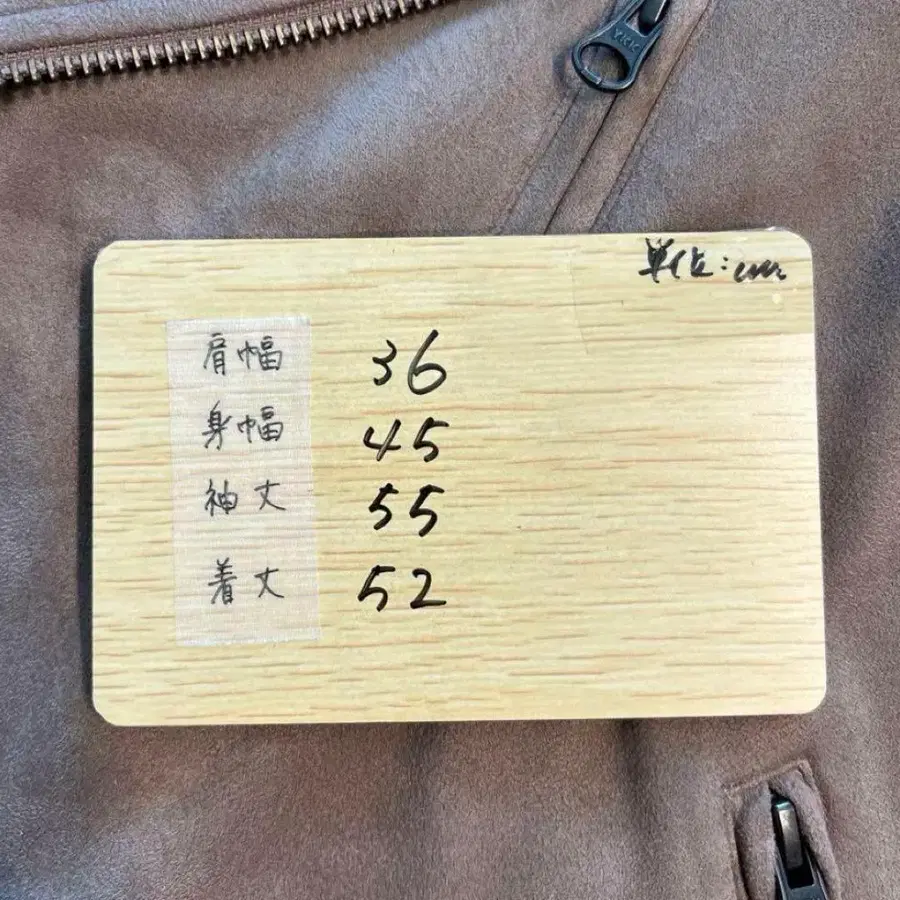 YKK
単位:cm
肩幅 36
身幅 45
袖丈 55
着丈 52